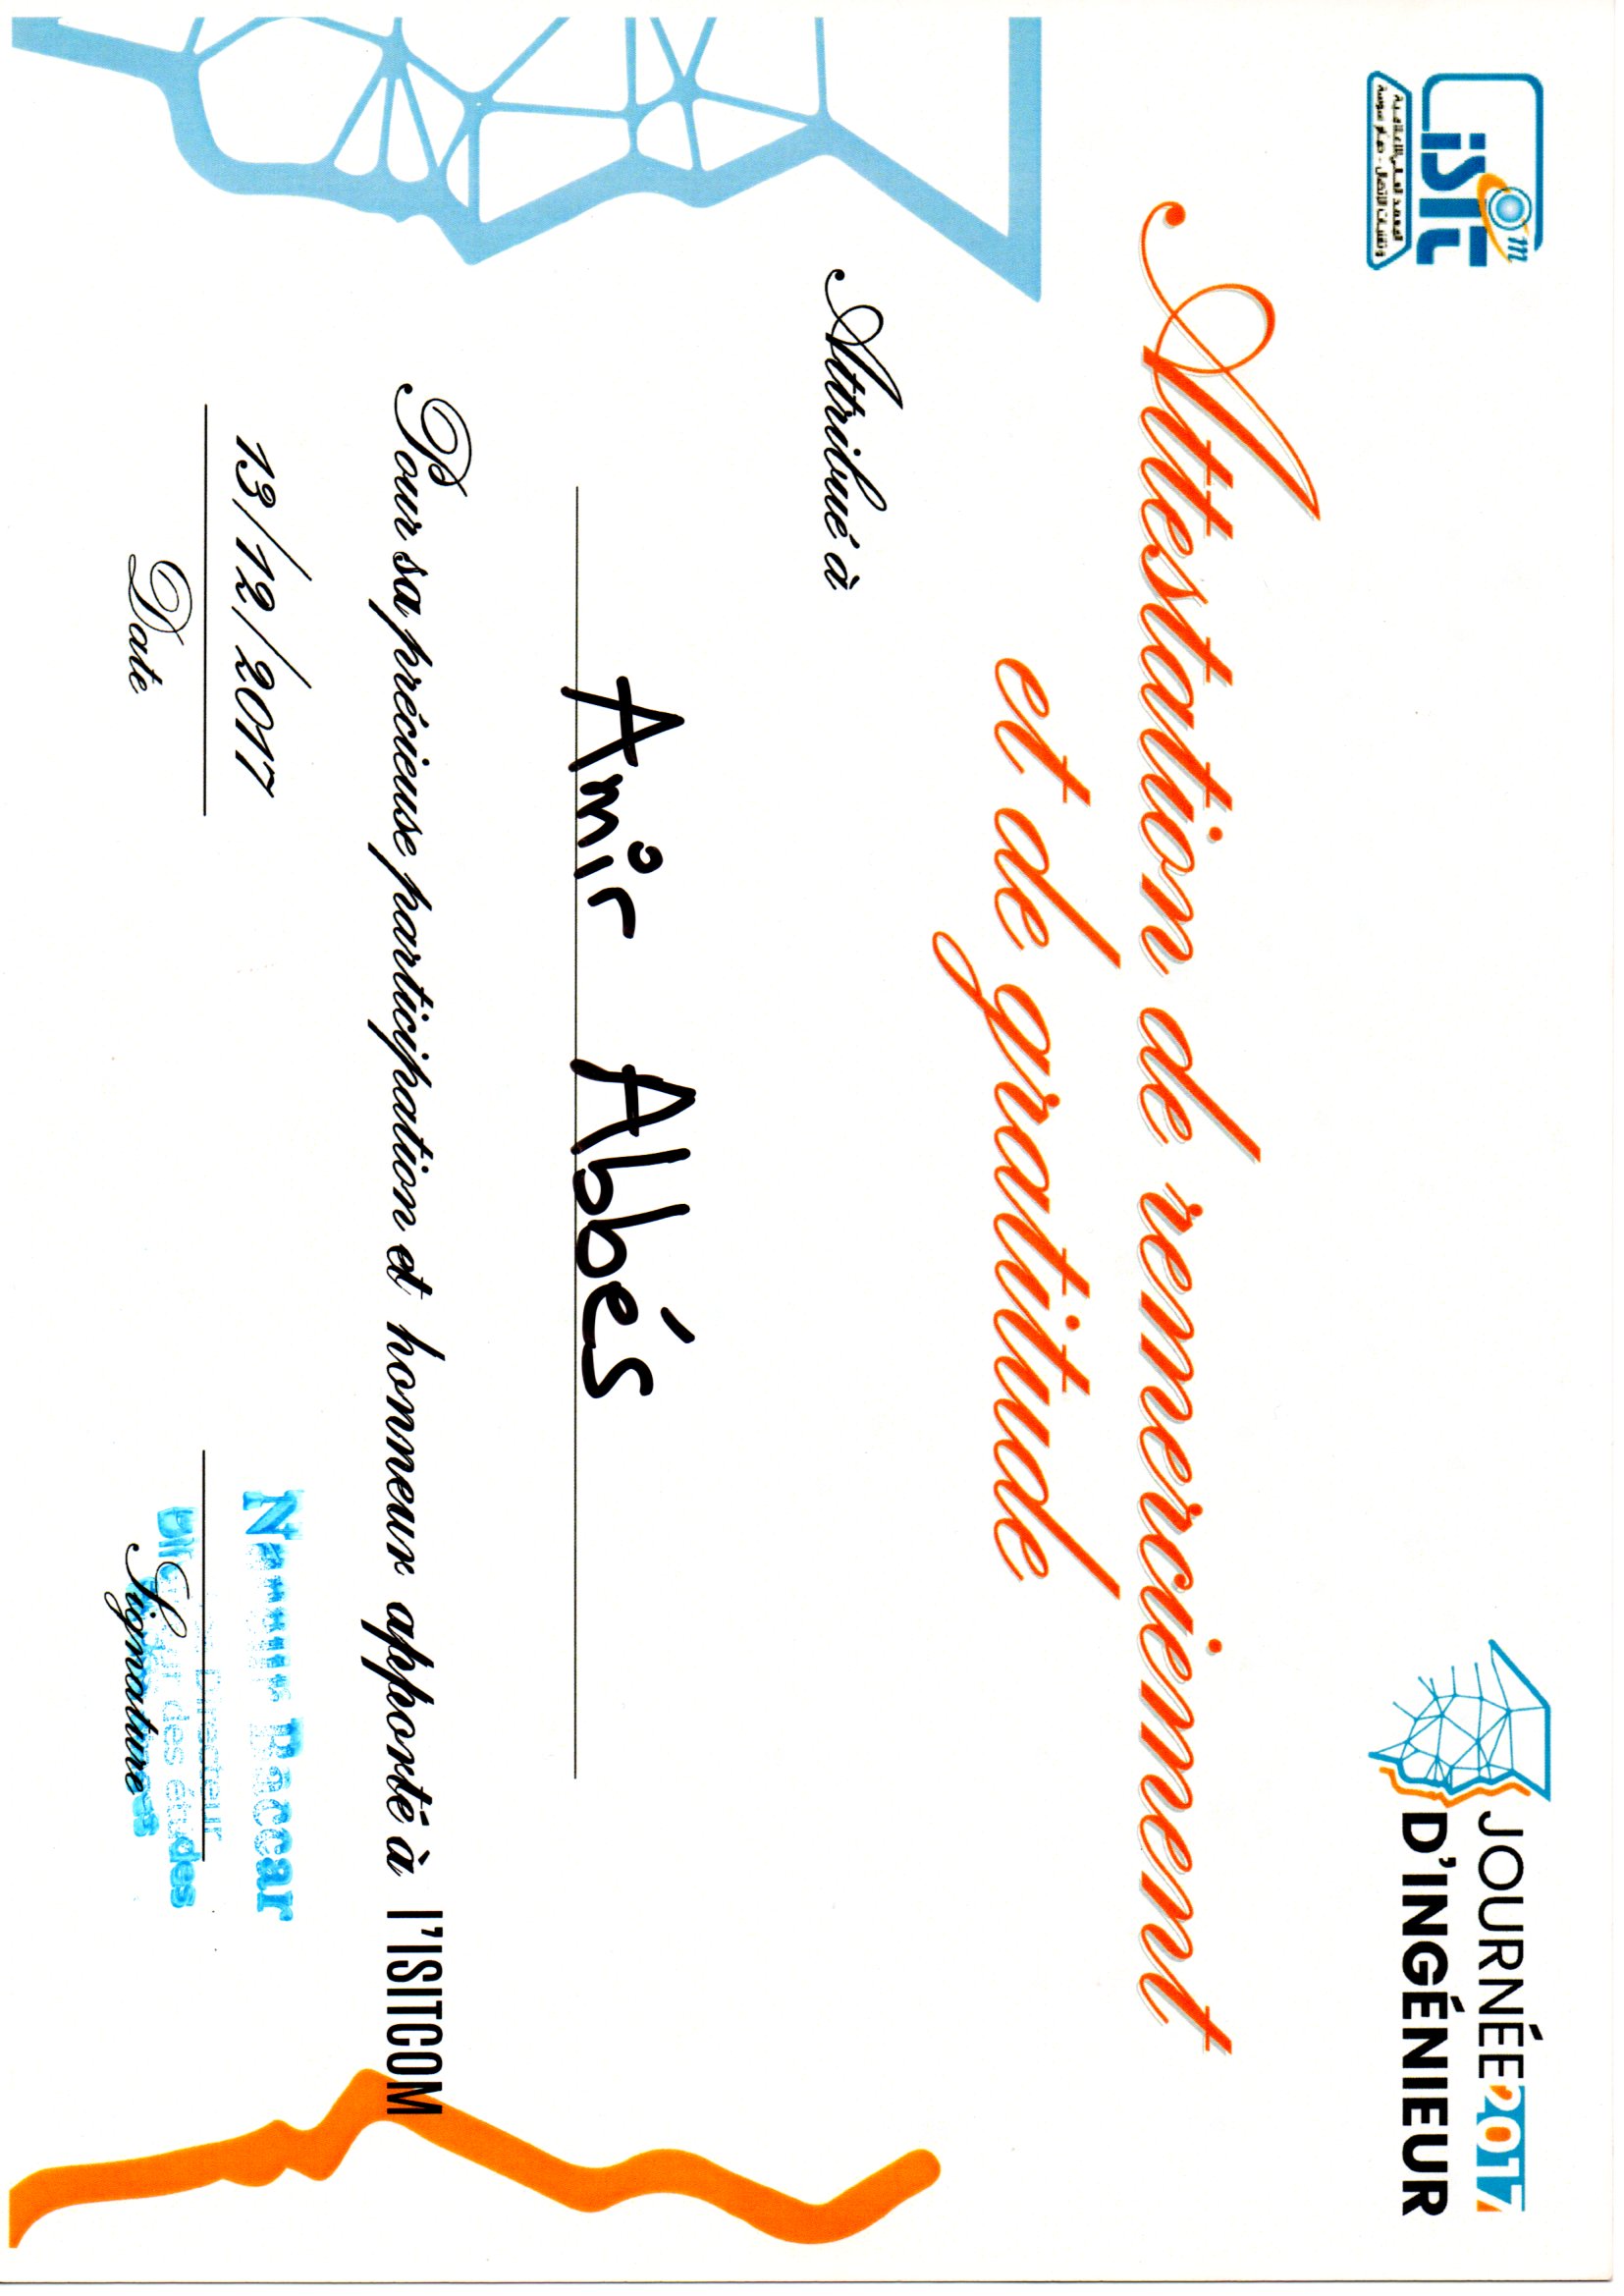 isit m
المعهد العالي للإعلامية
و تقنيات الإتصال - حمام سوسة
JOURNÉE 2017
D'INGÉNIEUR
Attestation de remerciement
et de gratitude
Attribué à
Amir Abbés
Pour sa précieuse participation et honneur apporté à l'ISITCOM
13/12/2017
Date
Baccar
Directeur
des études
Signature